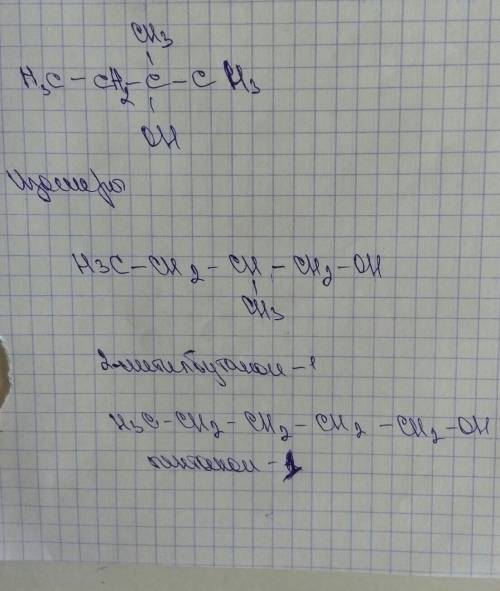 CH3
H3C - CH2 - C - CH3
OH
Изомеры
H3C - CH2 - CH - CH2 - OH
CH3
2-метилбутанол-1
H3C - CH2 - CH2 - CH2 - CH2 - OH
пентанол-1